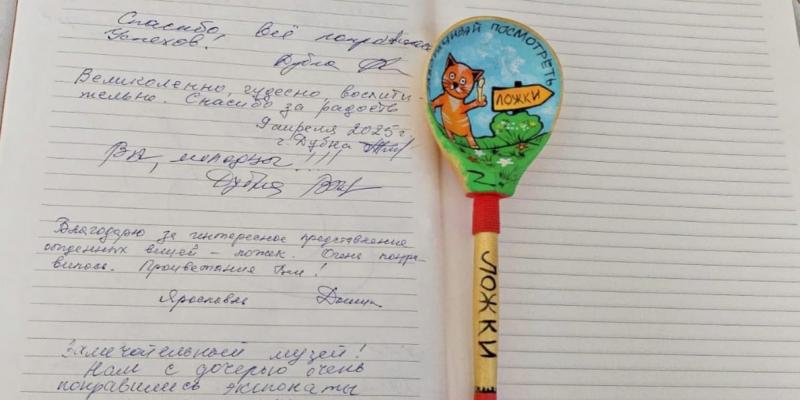 Спасибо, всё понравилось
Успехов!
Дубна
Великолепно, чудесно, восхити-
тельно. Спасибо за радость
9 апреля 2025 г.
г. Дубна
Вы, молодцы!!!!
Дубна
Благодарю за интересное представление
обыденных вещей - ложек. Очень понра-
вилось. Процветания Вам!
Ярославль
Замечательный музей!
Нам с дочерью очень
понравились экспонаты
ПОСМОТРЕТЬ
ЛОЖКИ
ЛОЖКИ